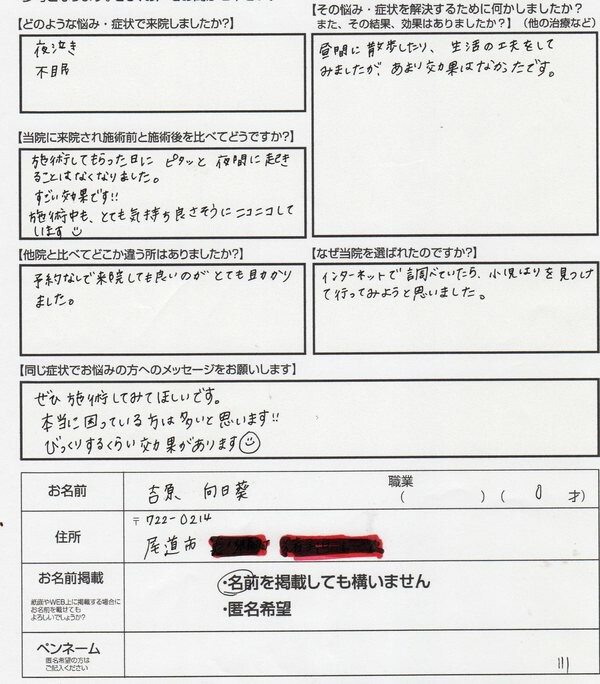 【どのような悩み・症状で来院しましたか?】
夜泣き
不眠
【その悩み・症状を解決するために何かしましたか?
また、その結果、効果はありましたか?】(他の治療など)
昼間に散歩したり、生活の工夫をして
みましたが、あまり効果はなかったです。
【当院に来院され施術前と施術後を比べてどうですか?】
施術してもらった日に ピタッと 夜間に起き
ることはなくなりました。
すごい効果です!!
施術中も、とても気持ち良さそうにニコニコして
います
【他院と比べてどこか違う所はありましたか?】
予約なしで来院しても良いのがとても助かり
ました。
【なぜ当院を選ばれたのですか?】
インターネットで調べていたら、小児はりを見つけ
て行ってみようと思いました。
【同じ症状でお悩みの方へのメッセージをお願いします】
ぜひ施術してみてほしいです。
本当に困っている方は多いと思います!!
びっくりするくらい効果があります
お名前 吉原 向日葵 職業 ( ) ( 0 才)
住所 〒722-0214
尾道市
お名前掲載
紙面やWEB上に掲載する場合に
お名前を載せても
よろしいでしょうか?
・名前を掲載しても構いません
・匿名希望
ペンネーム
匿名希望の方は
ご記入ください